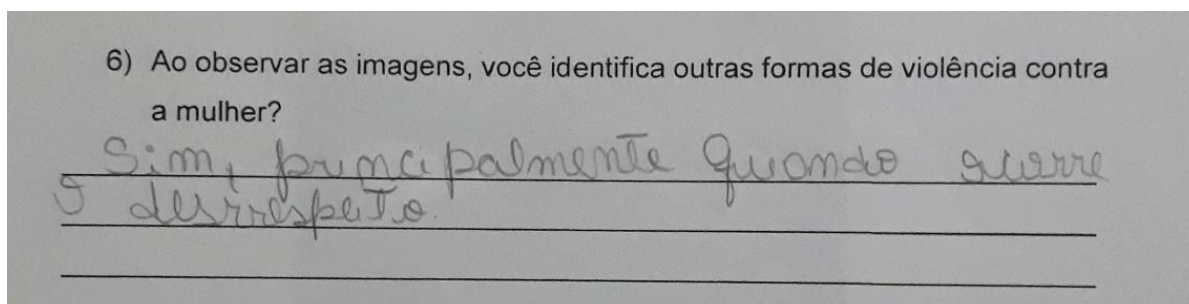 6) Ao observar as imagens, você identifica outras formas de violência contra
a mulher?
Sim, principalmente quando ocorre
o desrrespeito.